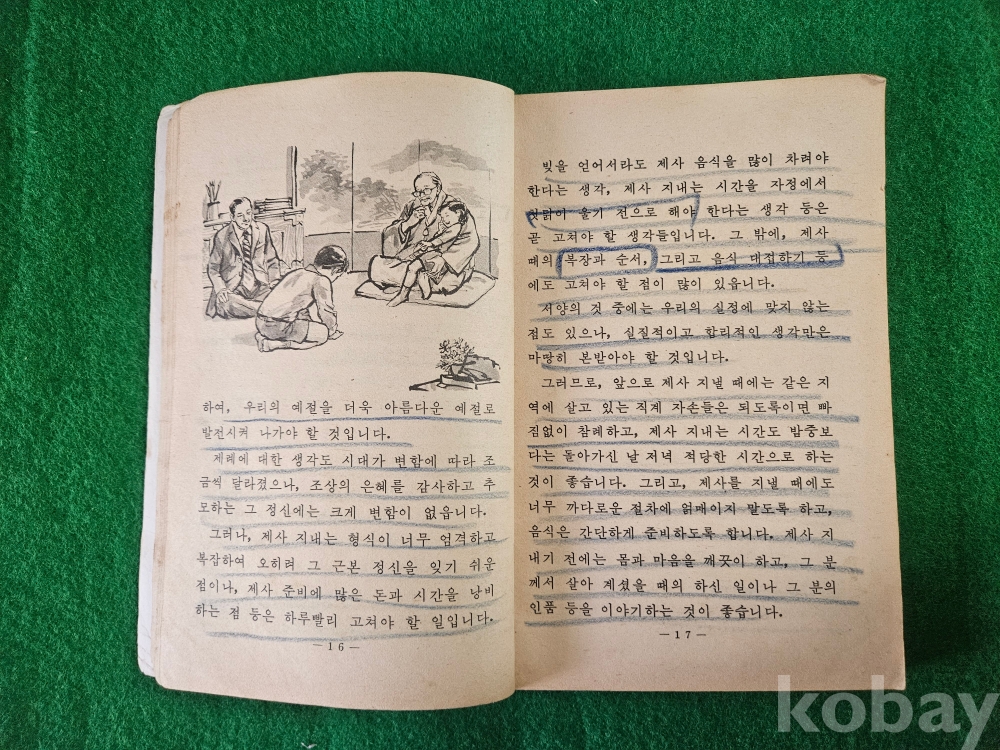 하여, 우리의 예절을 더욱 아름다운 예절로
발전시켜 나가야 할 것입니다.
제례에 대한 생각도 시대가 변함에 따라 조
금씩 달라졌으나, 조상의 은혜를 감사하고 추
모하는 그 정신에는 크게 변함이 없읍니다.
그러나, 제사 지내는 형식이 너무 엄격하고
복잡하여 오히려 그 근본 정신을 잊기 쉬운
점이나, 제사 준비에 많은 돈과 시간을 낭비
하는 점 등은 하루빨리 고쳐야 할 일입니다.
— 16 —
빚을 얻어서라도 제사 음식을 많이 차려야
한다는 생각, 제사 지내는 시간을 자정에서
첫닭이 울기 전으로 해야 한다는 생각 등은
곧 고쳐야 할 생각들입니다. 그 밖에, 제사
때의 복장과 순서, 그리고 음식 대접하기 등
에도 고쳐야 할 점이 많이 있읍니다.
서양의 것 중에는 우리의 실정에 맞지 않는
점도 있으나, 실질적이고 합리적인 생각만은
마땅히 본받아야 할 것입니다.
그러므로, 앞으로 제사 지낼 때에는 같은 지
역에 살고 있는 직계 자손들은 되도록이면 빠
짐없이 참례하고, 제사 지내는 시간도 밤중보
다는 돌아가신 날 저녁 적당한 시간으로 하는
것이 좋습니다. 그리고, 제사를 지낼 때에도
너무 까다로운 절차에 얽매이지 말도록 하고,
음식은 간단하게 준비하도록 합니다. 제사 지
내기 전에는 몸과 마음을 깨끗이 하고, 그 분
께서 살아 계셨을 때의 하신 일이나 그 분의
인품 등을 이야기하는 것이 좋습니다.
— 17 —
kobay